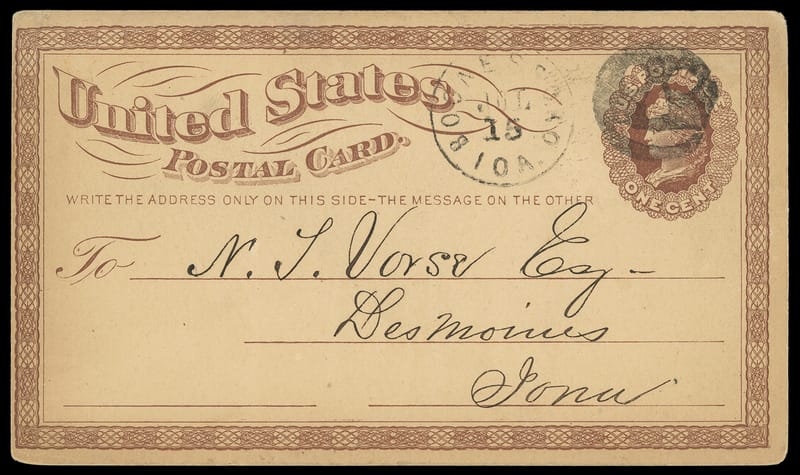 United States
POSTAL CARD.
BOONESBORO
JUL
15
IOA.
U.S. POSTAGE
ONE CENT
WRITE THE ADDRESS ONLY ON THIS SIDE-THE MESSAGE ON THE OTHER
To N. S. Vorse Esq-
DesMoines
Iowa